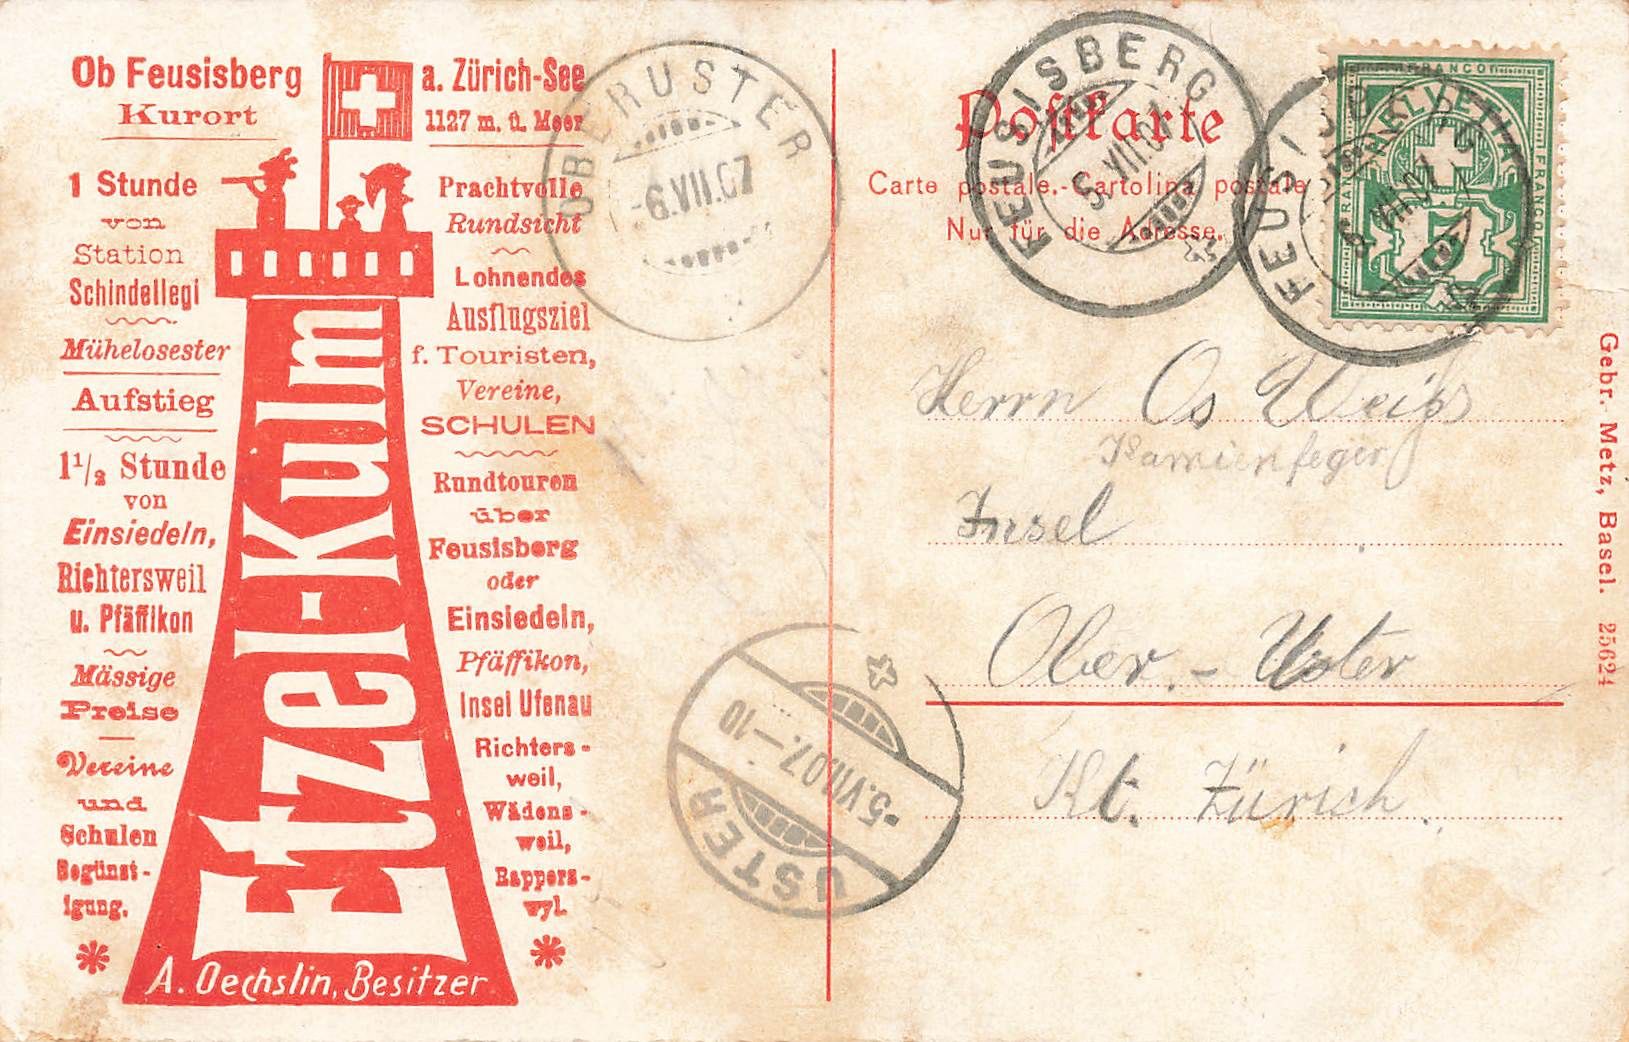 Ob Feusisberg
Kurort
1 Stunde
von
Station
Schindellegi
Mühelosester
Aufstieg
1½ Stunde
von
Einsiedeln,
Richtersweil
u. Pfäffikon
Mässige
Preise
Vereine
und
Schulen
Begünst-
igung.
Etzel-Kulm
A. Oechslin, Besitzer
a. Zürich-See
1127 m. ü. Meer
Prachtvolle
Rundsicht
Lohnendes
Ausflugsziel
f. Touristen,
Vereine,
SCHULEN
Rundtouren
über
Feusisberg
oder
Einsiedeln,
Pfäffikon,
Insel Ufenau
Richters-
weil,
Wädens-
weil,
Rappers-
wyl.
OBERUSTER
-6.VII.07
USTER
-5.VII.07.-10
Postkarte
Carte postale.-Cartolina postale
Nur für die Adresse.
FEUSISBERG
5.VII.07
FEUSISBERG
5.VII.07
HELVETIA
FRANCO
FRANCO
FRANCO
5
Herrn Os Weiß
Kamienfeger
Insel
Ober.-Uster
Kt. Zürich.
Gebr. Metz, Basel. 25624